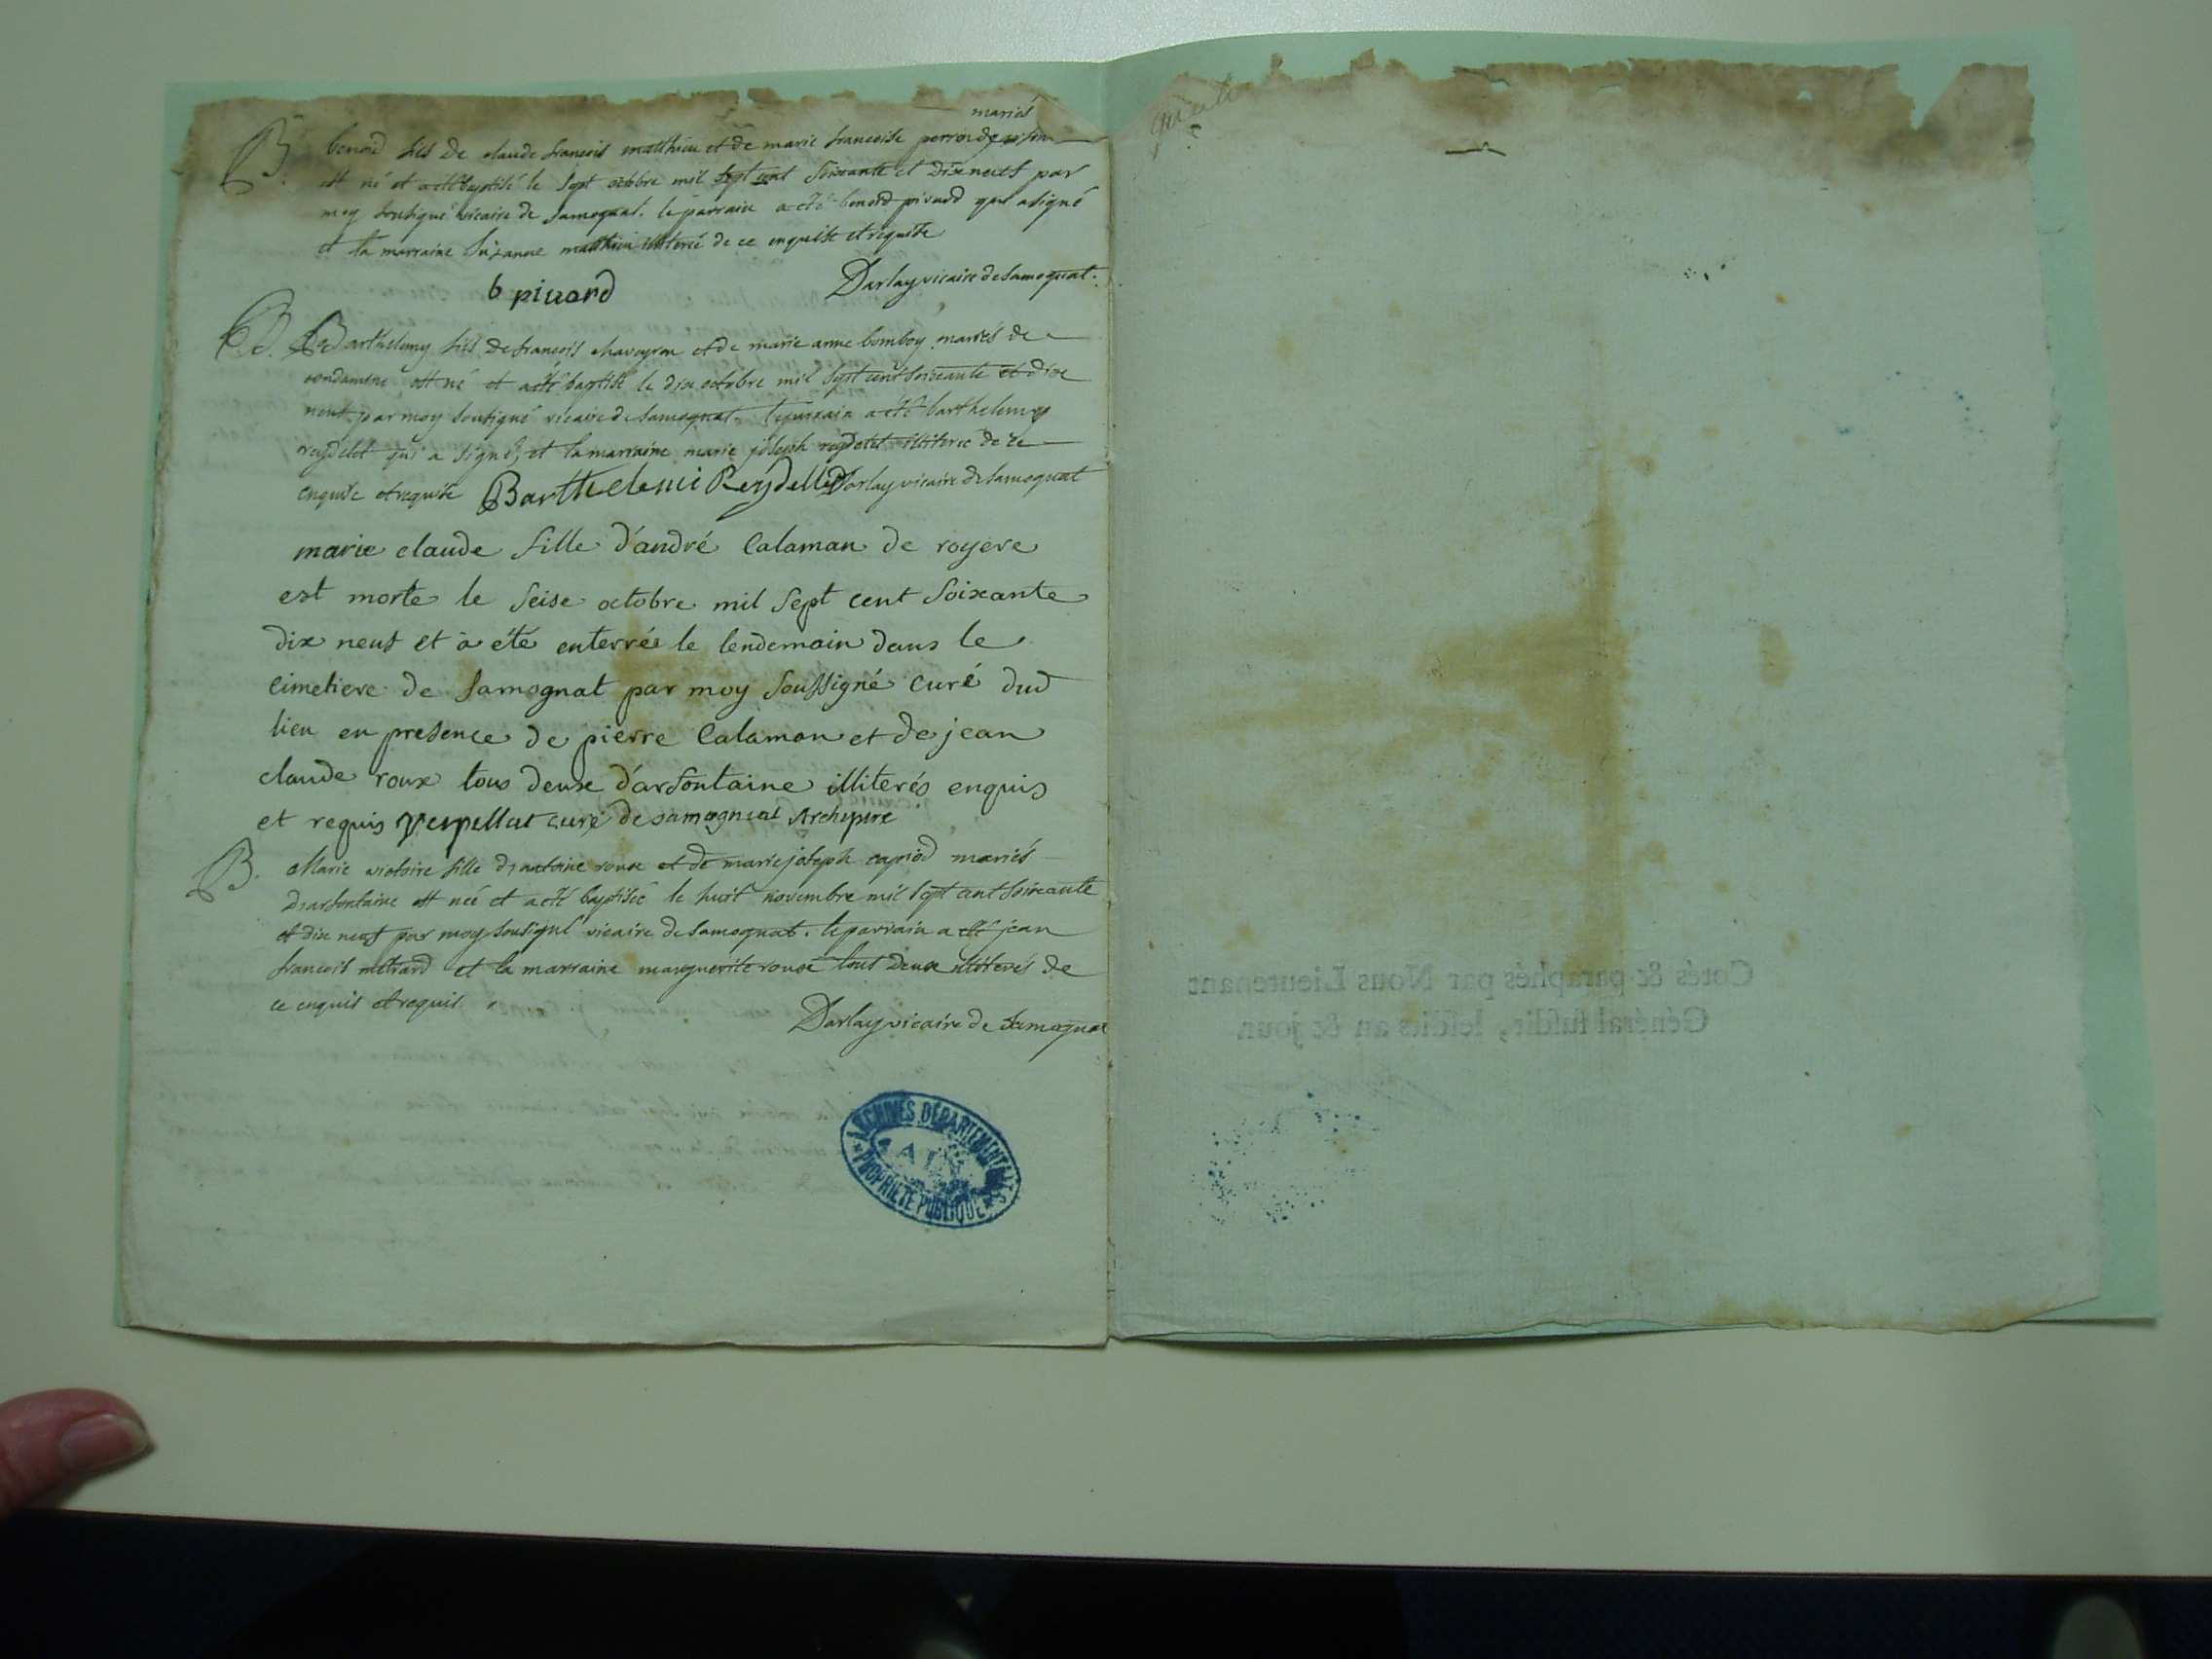 mariés
B. benoid fils de claude françois matthieu et de marie francoise perron de
est né et a été baptisé le sept octobre mil sept cent soixante et dix neuf par
moy soutigné vicaire de samognat. le parrain a été benoid pivard qui a signé
et la marraine suzanne matthieu illiterée de ce enquise et requise
b pivard Darlay vicaire de samognat.
B. Barthelemy fils de francois chaveyron et de marie anne bomboy mariés de
condamine est né et a été baptisé le dix octobre mil sept cent soixante et dix
neuf par moy soutigné vicaire de samognat. le parrain a été barthelemy
reydelet qui a signé, et la marraine marie joseph reydelet illiterée de ce
enquise et requise Barthelemi Reydellet Darlay vicaire de samognat
marie claude fille d'andré Calaman de royere
est morte le seise octobre mil sept cent soixante
dix neuf et à été enterrée le lendemain dans le
cimetiere de samognat par moy soussigné curé dud
lieu en presence de pierre Calaman et de jean
claude roux tous deux d'arfontaine illiterés enquis
et requis curé de samognat Archipre
B. Marie victoire fille d'antoine roux et de marie joseph mariés
d'arfontaine est née et a été baptisée le huit novembre mil sept cent soixante
et dix neuf par moy soutigné vicaire de samognat. le parrain a été jean
francois metrard et la marraine marguerite roux tous deux illiterés de
ce enquis et requis.
Darlay vicaire de Samognat
ARCHIVES DÉPARTEMENTALES
AIN
PROPRIÉTÉ PUBLIQUE
Cotés & paraphés par Nous Lieutenant
Général susdit, lesdits an & jour.